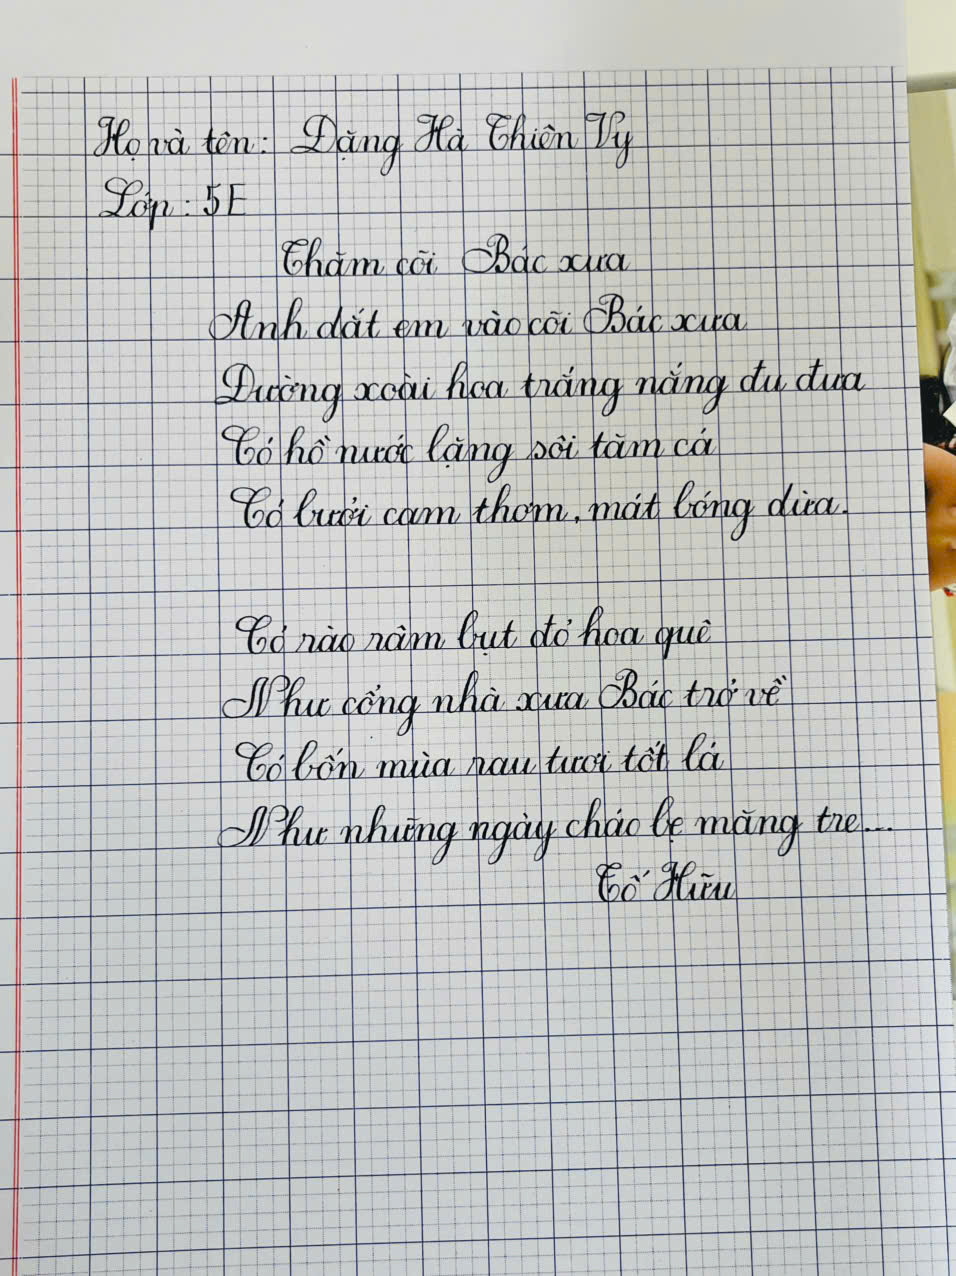 Họ và tên: Đặng Hà Thiên Vy
Lớp: 5E
Thăm cõi Bác xưa
Anh dắt em vào cõi Bác xưa
Đường xoài hoa trắng nắng đu đưa
Có hồ nước lặng sôi tăm cá
Có bưởi cam thơm, mát bóng dừa.
Có rào râm bụt đỏ hoa quê
Như cổng nhà xưa Bác trở về
Có bốn mùa rau tươi tốt lá
Như những ngày cháo bẹ măng tre...
Tố Hữu